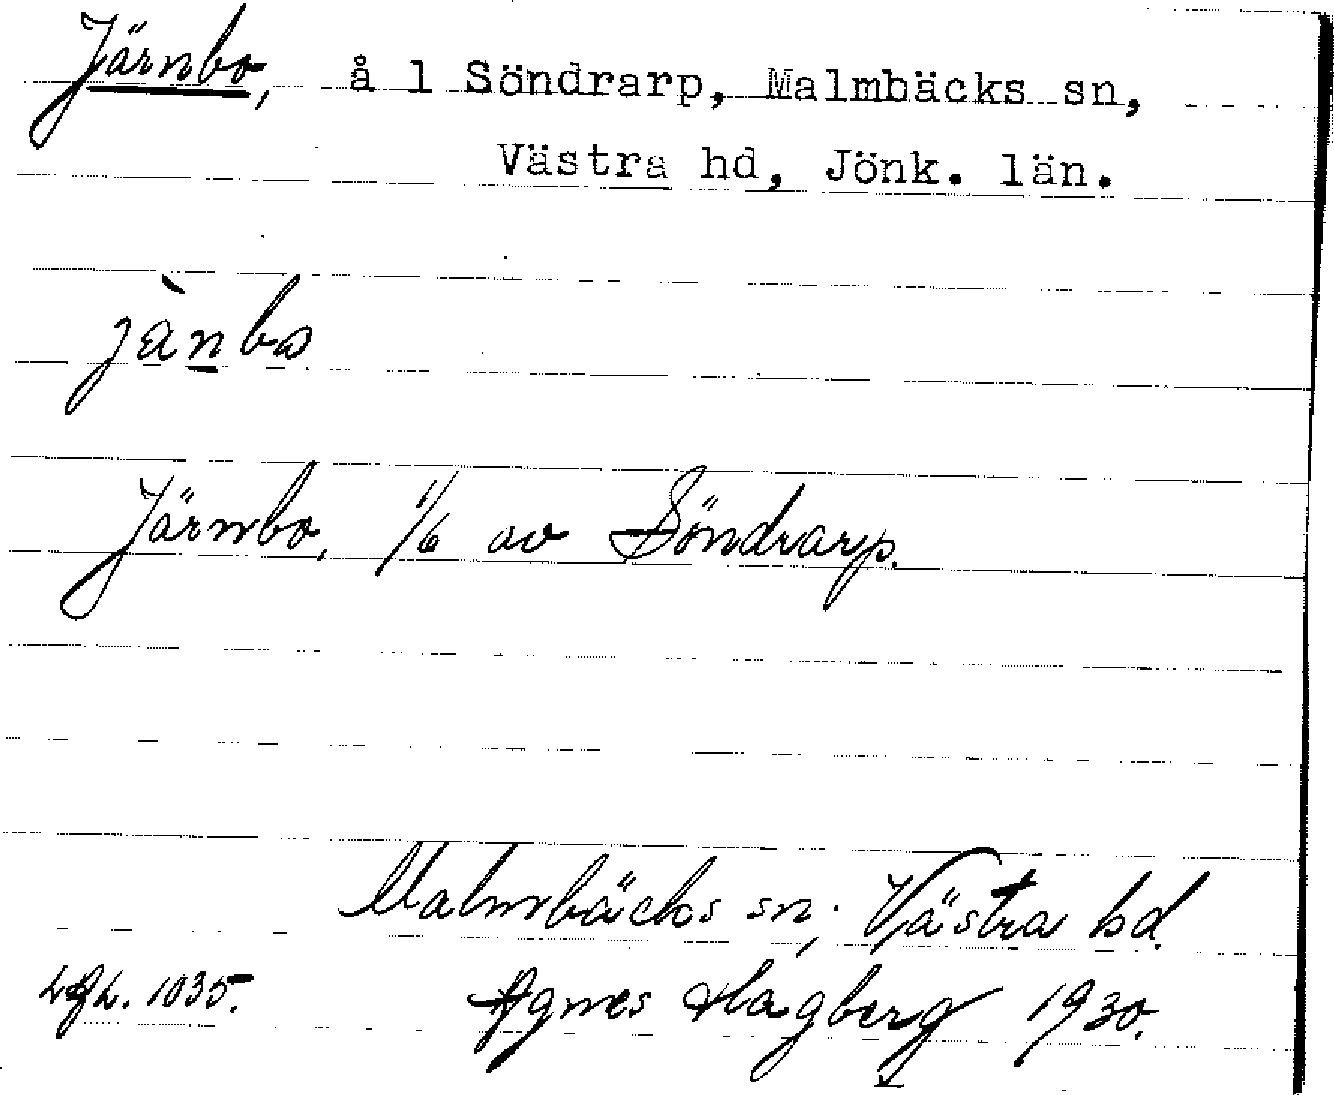 Järnbo, å 1 Söndrarp, Malmbäcks sn,
Västra hd, Jönk. län.
jànbo
Järnbo, 1/6 av Söndrarp.
Malmbäcks sn, Västra hd.
1035. Agnes Hagberg 1930.